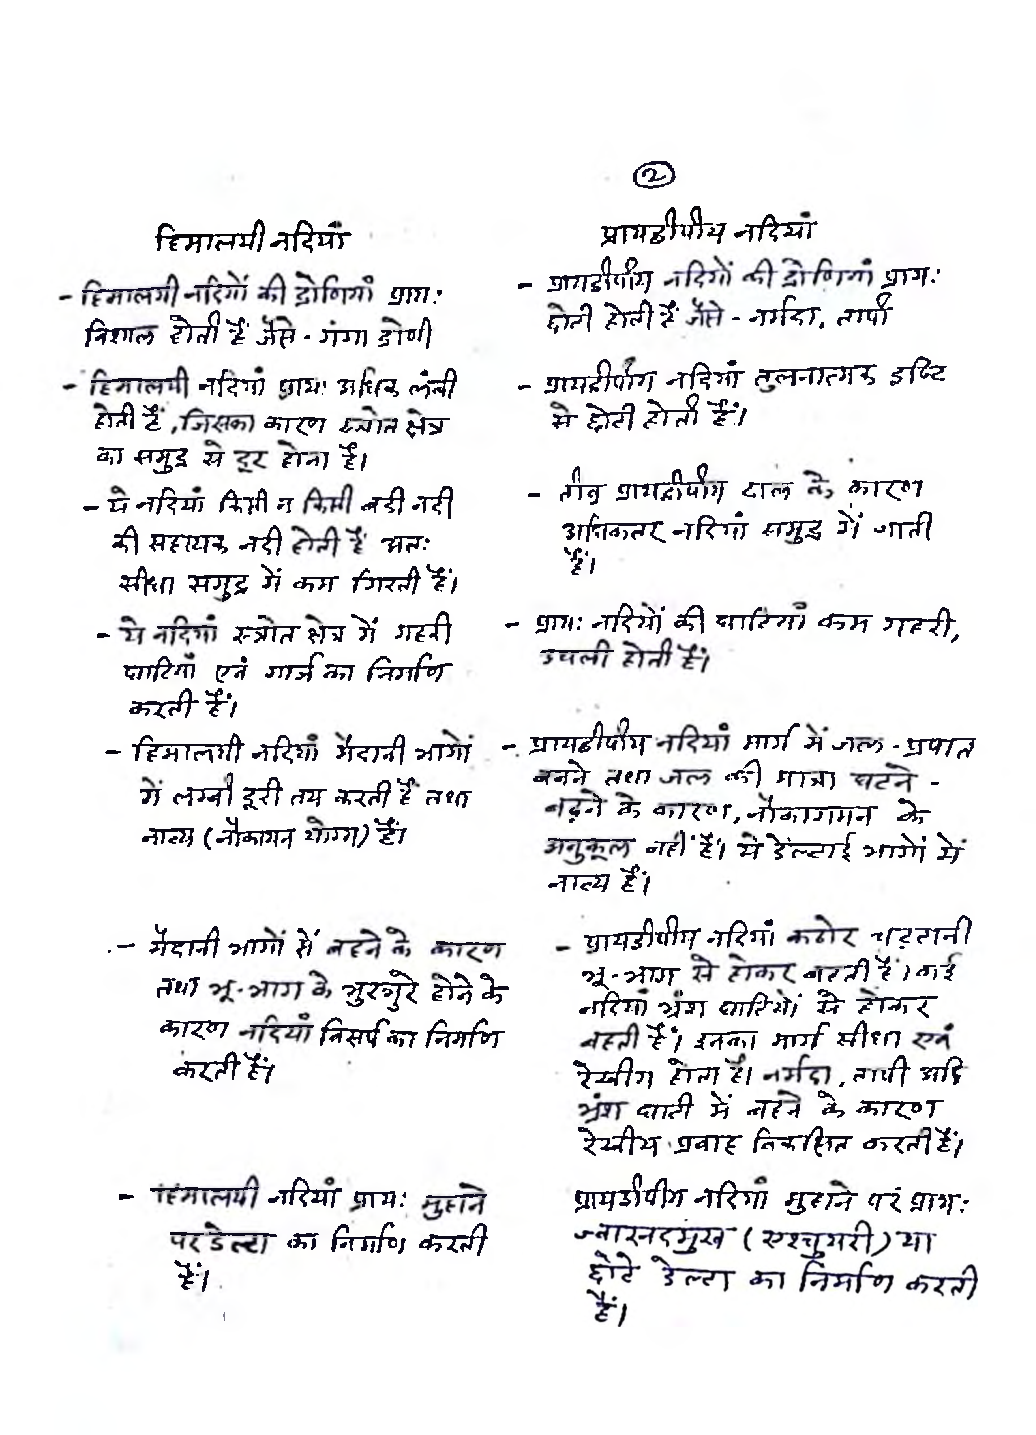 २
हिमालयी नदियाँ
- हिमालयी नदियों की द्रोणियां प्रायः
विशाल होती हैं जैसे - गंगा द्रोणी
- हिमालयी नदियां प्रायः अधिक लंबी
होती हैं, जिसका कारण स्त्रोत क्षेत्र
का समुद्र से दूर होना है।
- ये नदियां किसी न किसी बडी नदी
की सहायक नदी होती हैं अतः
सीधा समुद्र में कम गिरती हैं।
- ये नदियां स्त्रोत क्षेत्र में गहरी
घाटियाँ एवं गार्ज का निर्माण
करती हैं।
- हिमालयी नदियां मैदानी भागों
में लम्बी दूरी तय करती हैं तथा
नाव्य (नौकागन योग्य) हैं।
- मैदानी भागों में बहने के कारण
तथा भू-भाग के भुरभुरे होने के
कारण नदियां विसर्प का निर्माण
करती हैं।
- हिमालयी नदियां प्रायः मुहाने
पर डेल्टा का निर्माण करती
हैं।
प्रायद्वीपीय नदियां
- प्रायद्वीपीय नदियों की द्रोणियां प्रायः
छोटी होती हैं जैसे - नर्मदा, तापी
- प्रायद्वीपीय नदियां तुलनात्मक दृष्टि
से छोटी होती हैं।
- तीव्र प्रायद्वीपीय ढाल के कारण
अधिकतर नदियां समुद्र में जाती
हैं।
- प्रायः नदियों की घाटियां कम गहरी,
उथली होती हैं।
- प्रायद्वीपीय नदियां मार्ग में जल-प्रपात
बनने तथा जल की मात्रा घटने -
बढ़ने के कारण, नौकागमन के
अनुकूल नहीं हैं। ये डेल्टाई भागों में
नाव्य हैं।
- प्रायद्वीपीय नदियां कठोर चट्टानी
भू-भाग से होकर बहती हैं। कई
नदियां भ्रंश घाटियों से होकर
बहती हैं। इनका मार्ग सीधा एवं
रेखीय होता है। नर्मदा, तापी आदि
भ्रंश घाटी में बहने के कारण
रेखीय प्रवाह विकसित करती हैं।
प्रायद्वीपीय नदियां मुहाने पर प्रायः
ज्वारनदमुख (एश्चुयरी) या
छोटे डेल्टा का निर्माण करती
हैं।